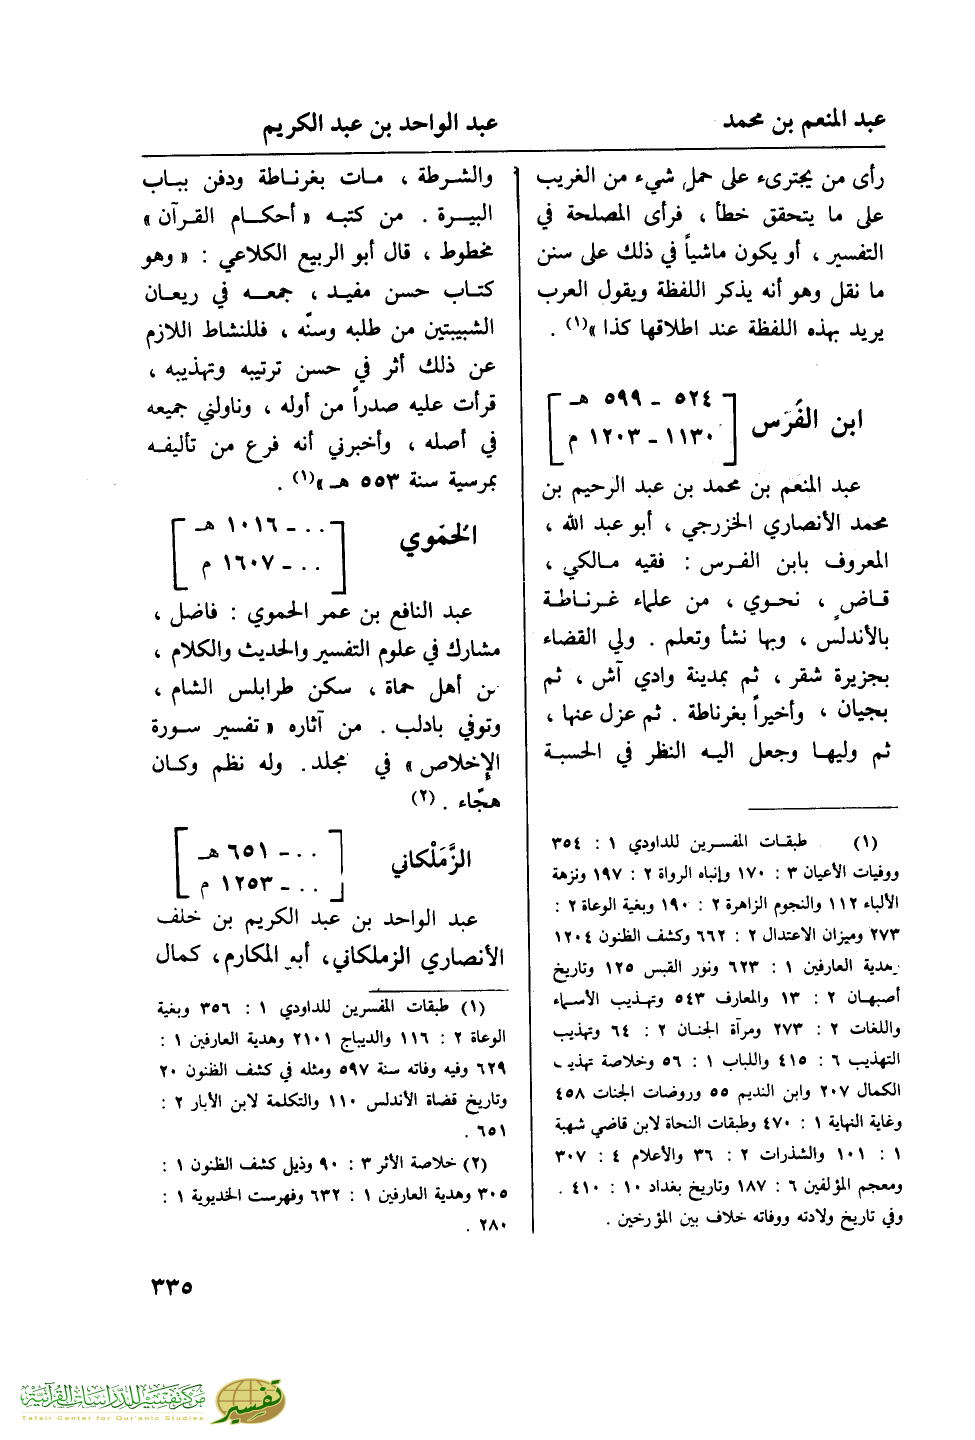 عبد المنعم بن محمد
عبد الواحد بن عبد الكريم
رأى من يجترىء على حمل شيء من الغريب
على ما يتحقق خطأ ، فرأى المصلحة في
التفسير ، أو يكون ماشياً في ذلك على سنن
ما نقل وهو أنه يذكر اللفظة ويقول العرب
يريد بهذه اللفظة عند اطلاقها كذا »(١) .
ابن الفَرَس
٥٢٤ - ٥٩٩ هـ
١١٣٠ - ١٢٠٣ م
عبد المنعم بن محمد بن عبد الرحيم بن
محمد الأنصاري الخزرجي ، أبو عبد الله ،
المعروف بابن الفرس : فقيه مالكي ،
قاضٍ ، نحوي ، من علماء غرناطة
بالأندلس ، وبها نشأ وتعلم . ولي القضاء
بجزيرة شقر ، ثم بمدينة وادي آش ، ثم
بجيان ، وأخيراً بغرناطة . ثم عزل عنها ،
ثم وليها وجعل اليه النظر في الحسبة
(١) طبقات المفسرين للداودي ١ : ٣٥٤
ووفيات الأعيان ٣ : ١٧٠ وإنباه الرواة ٢ : ١٩٧ ونزهة
الألباء ١١٢ والنجوم الزاهرة ٢ : ١٩٠ وبغية الوعاة ٢ :
٢٧٣ وميزان الاعتدال ٢ : ٦٦٢ وكشف الظنون ١٢٠٤
وهدية العارفين ١ : ٦٢٣ ونور القبس ١٢٥ وتاريخ
أصبهان ٢ : ١٣ والمعارف ٥٤٣ وتهذيب الأسماء
واللغات ٢ : ٢٧٣ ومرآة الجنان ٢ : ٦٤ وتهذيب
التهذيب ٦ : ٤١٥ واللباب ١ : ٥٦ وخلاصة تهذيب
الكمال ٢٠٧ وابن النديم ٥٥ وروضات الجنات ٤٥٨
وغاية النهاية ١ : ٤٧٠ وطبقات النحاة لابن قاضي شهبة
١ : ١٠١ والشذرات ٢ : ٣٦ والأعلام ٤ : ٣٠٧
ومعجم المؤلفين ٦ : ١٨٧ وتاريخ بغداد ١٠ : ٤١٠ .
وفي تاريخ ولادته ووفاته خلاف بين المؤرخين .
والشرطة ، مات بغرناطة ودفن بباب
البيرة . من كتبه « أحكام القرآن »
مخطوط ، قال أبو الربيع الكلاعي : « وهو
كتاب حسن مفيد ، جمعه في ريعان
الشبيبتين من طلبه وسنّه ، فللنشاط اللازم
عن ذلك أثر في حسن ترتيبه وتهذيبه ،
قرأت عليه صدراً من أوله ، وناولني جميعه
في أصله ، وأخبرني أنه فرغ من تأليفه
بمرسية سنة ٥٥٣ هـ »(١) .
الحَمَوي
. . - ١٠١٦ هـ
. . - ١٦٠٧ م
عبد النافع بن عمر الحموي : فاضل ،
مشارك في علوم التفسير والحديث والكلام ،
من أهل حماة ، سكن طرابلس الشام ،
وتوفي بادلب . من آثاره « تفسير سورة
الإخلاص » في مجلد. وله نظم وكان
هجّاء . (٢)
الزَّمَلْكاني
. . - ٦٥١ هـ
. . - ١٢٥٣ م
عبد الواحد بن عبد الكريم بن خلف
الأنصاري الزملكاني، أبو المكارم، كمال
(١) طبقات المفسرين للداودي ١ : ٣٥٦ وبغية
الوعاة ٢ : ١١٦ والديباج ٢١٠١ وهدية العارفين ١ :
٦٢٩ وفيه وفاته سنة ٥٩٧ ومثله في كشف الظنون ٢٠
وتاريخ قضاة الأندلس ١١٠ والتكلمة لابن الأبار ٢ :
٦٥١ .
(٢) خلاصة الأثر ٣ : ٩٠ وذيل كشف الظنون ١ :
٣٠٥ وهدية العارفين ١ : ٦٣٢ وفهرست الخديوية ١ :
٢٨٠ .
٣٣٥
مركز تفسير للدراسات القرآنية
Tafsir Center for Qur'anic Studies
تفسير